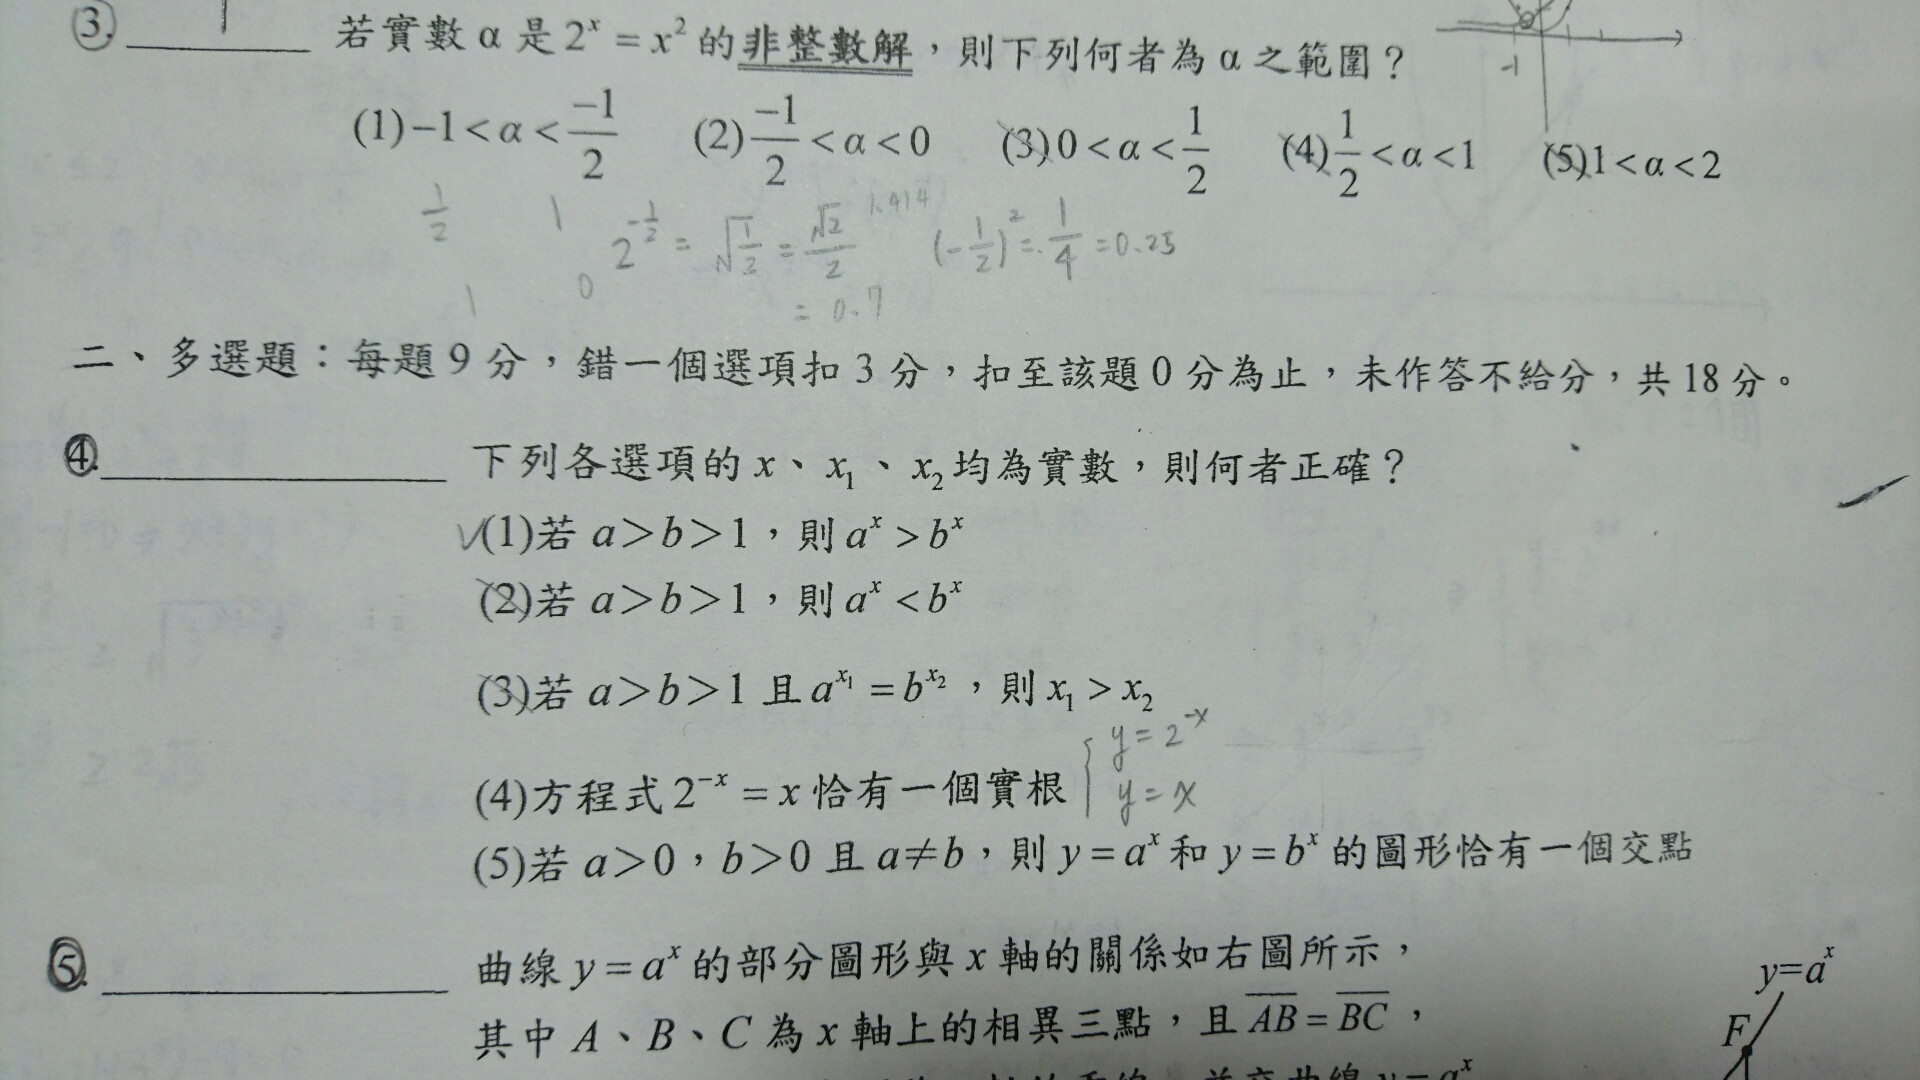 3. 1 若實數 α 是 2^x = x^2 的非整數解，則下列何者為 α 之範圍？
-1
(1) -1 < α < -1/2 (2) -1/2 < α < 0 (3) 0 < α < 1/2 (4) 1/2 < α < 1 (5) 1 < α < 2
1/2 1 2^(-1/2) = √(1/2) = √2/2 1.414 (-1/2)^2 = 1/4 = 0.25
1 0 = 0.7
二、多選題：每題 9 分，錯一個選項扣 3 分，扣至該題 0 分為止，未作答不給分，共 18 分。
4. 下列各選項的 x、x₁、x₂ 均為實數，則何者正確？
✓(1)若 a＞b＞1，則 a^x > b^x
(2)若 a＞b＞1，則 a^x < b^x
(3)若 a＞b＞1 且 a^x₁ = b^x₂，則 x₁ > x₂
y = 2^-x
(4)方程式 2^-x = x 恰有一個實根 { y = x
(5)若 a＞0，b＞0 且 a≠b，則 y = a^x 和 y = b^x 的圖形恰有一個交點
5. 曲線 y = a^x 的部分圖形與 x 軸的關係如右圖所示，
y=a^x
其中 A、B、C 為 x 軸上的相異三點，且 AB = BC，
F